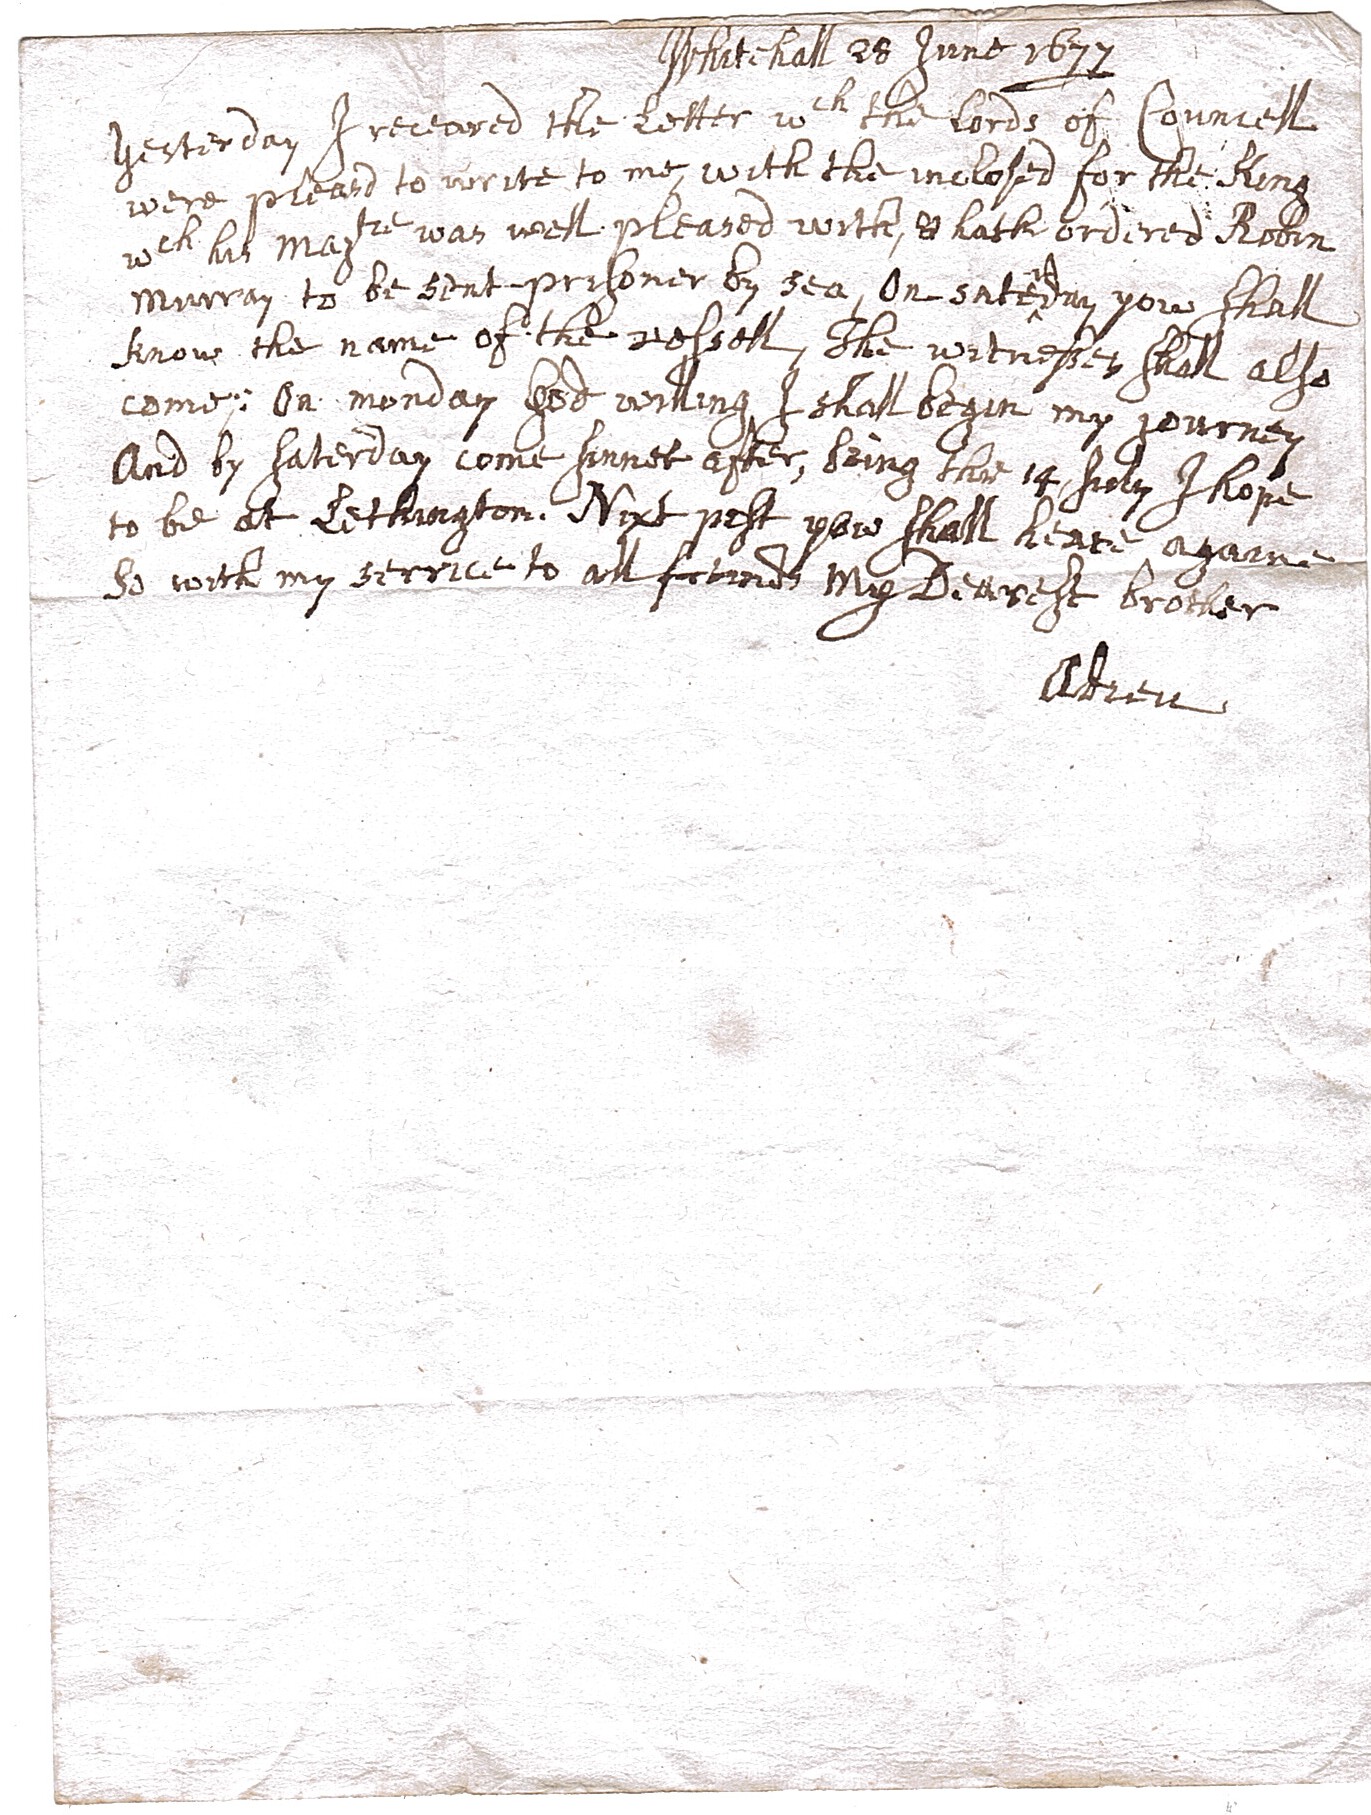 Whitehall 28 June 1677
Yesterday I receaved the Letter wch the Lords of Councell
were pleasd to write to me, with the inclosed for the King
wch his Matie was well pleased with, & hath ordered Robin
Murray to be sent prisoner by sea, On saterday yow shall
know the name of the vessell, The witnesses shall also
come; On monday God willing I shall begin my journey
And by saterday come sinnet after, being the 14 July I hope
to be at Lethington. Nixt post yow shall heare againe
So with my service to all friends My Dearest brother
Adieu